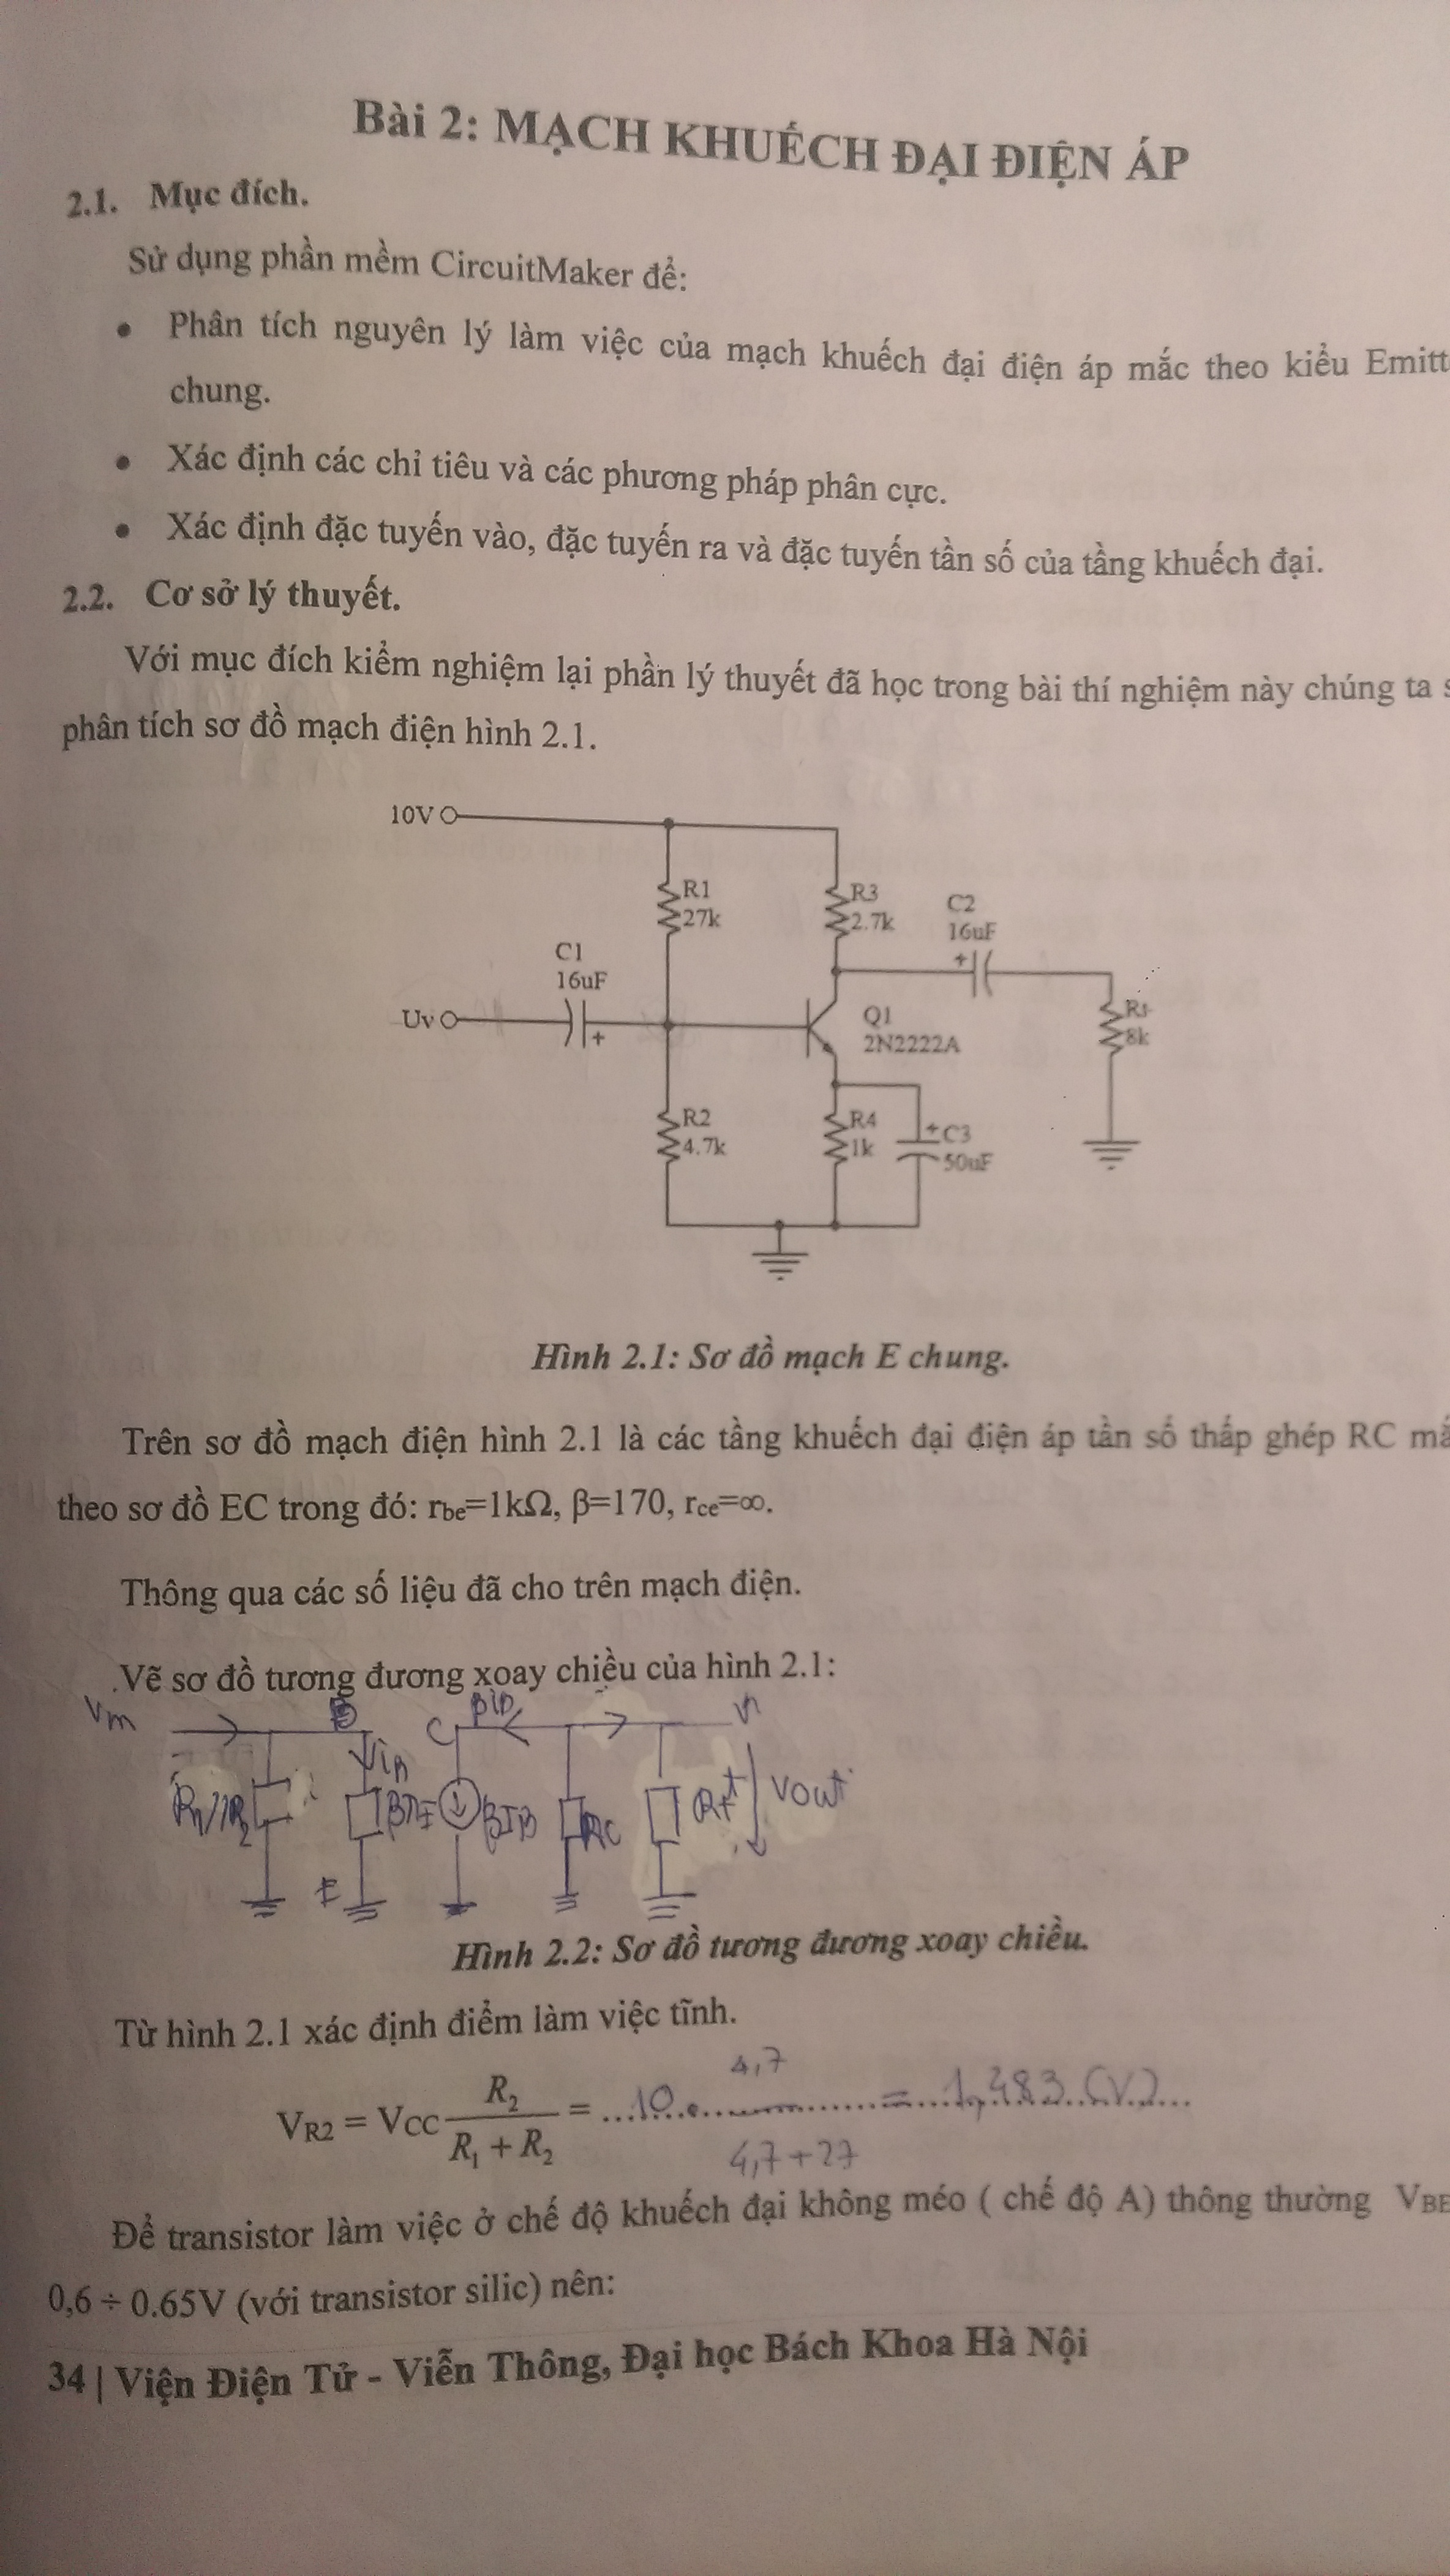 Bài 2: MẠCH KHUẾCH ĐẠI ĐIỆN ÁP
2.1. Mục đích.
Sử dụng phần mềm CircuitMaker để:
• Phân tích nguyên lý làm việc của mạch khuếch đại điện áp mắc theo kiểu Emitt
chung.
• Xác định các chỉ tiêu và các phương pháp phân cực.
• Xác định đặc tuyến vào, đặc tuyến ra và đặc tuyến tần số của tầng khuếch đại.
2.2. Cơ sở lý thuyết.
Với mục đích kiểm nghiệm lại phần lý thuyết đã học trong bài thí nghiệm này chúng ta s
phân tích sơ đồ mạch điện hình 2.1.
10V
R1
27k
R3
2.7k
C2
16uF
+
C1
16uF
Uv
+
Q1
2N2222A
8k
R2
4.7k
R4
1k
+ C3
50uF
Hình 2.1: Sơ đồ mạch E chung.
Trên sơ đồ mạch điện hình 2.1 là các tầng khuếch đại điện áp tần số thấp ghép RC mắ
theo sơ đồ EC trong đó: rbe=1kΩ, β=170, rce=∞.
Thông qua các số liệu đã cho trên mạch điện.
Vẽ sơ đồ tương đương xoay chiều của hình 2.1:
B
C
βib
R1//R2
βIB
RC
Rt
Vout
E
Hình 2.2: Sơ đồ tương đương xoay chiều.
Từ hình 2.1 xác định điểm làm việc tĩnh.
VR2 = VCC R2 / (R1 + R2) = ...10 . 4,7 / (4,7+27) = 1,483 (V)...
Để transistor làm việc ở chế độ khuếch đại không méo ( chế độ A) thông thường VBE
0,6 ÷ 0.65V (với transistor silic) nên:
34 | Viện Điện Tử - Viễn Thông, Đại học Bách Khoa Hà Nội